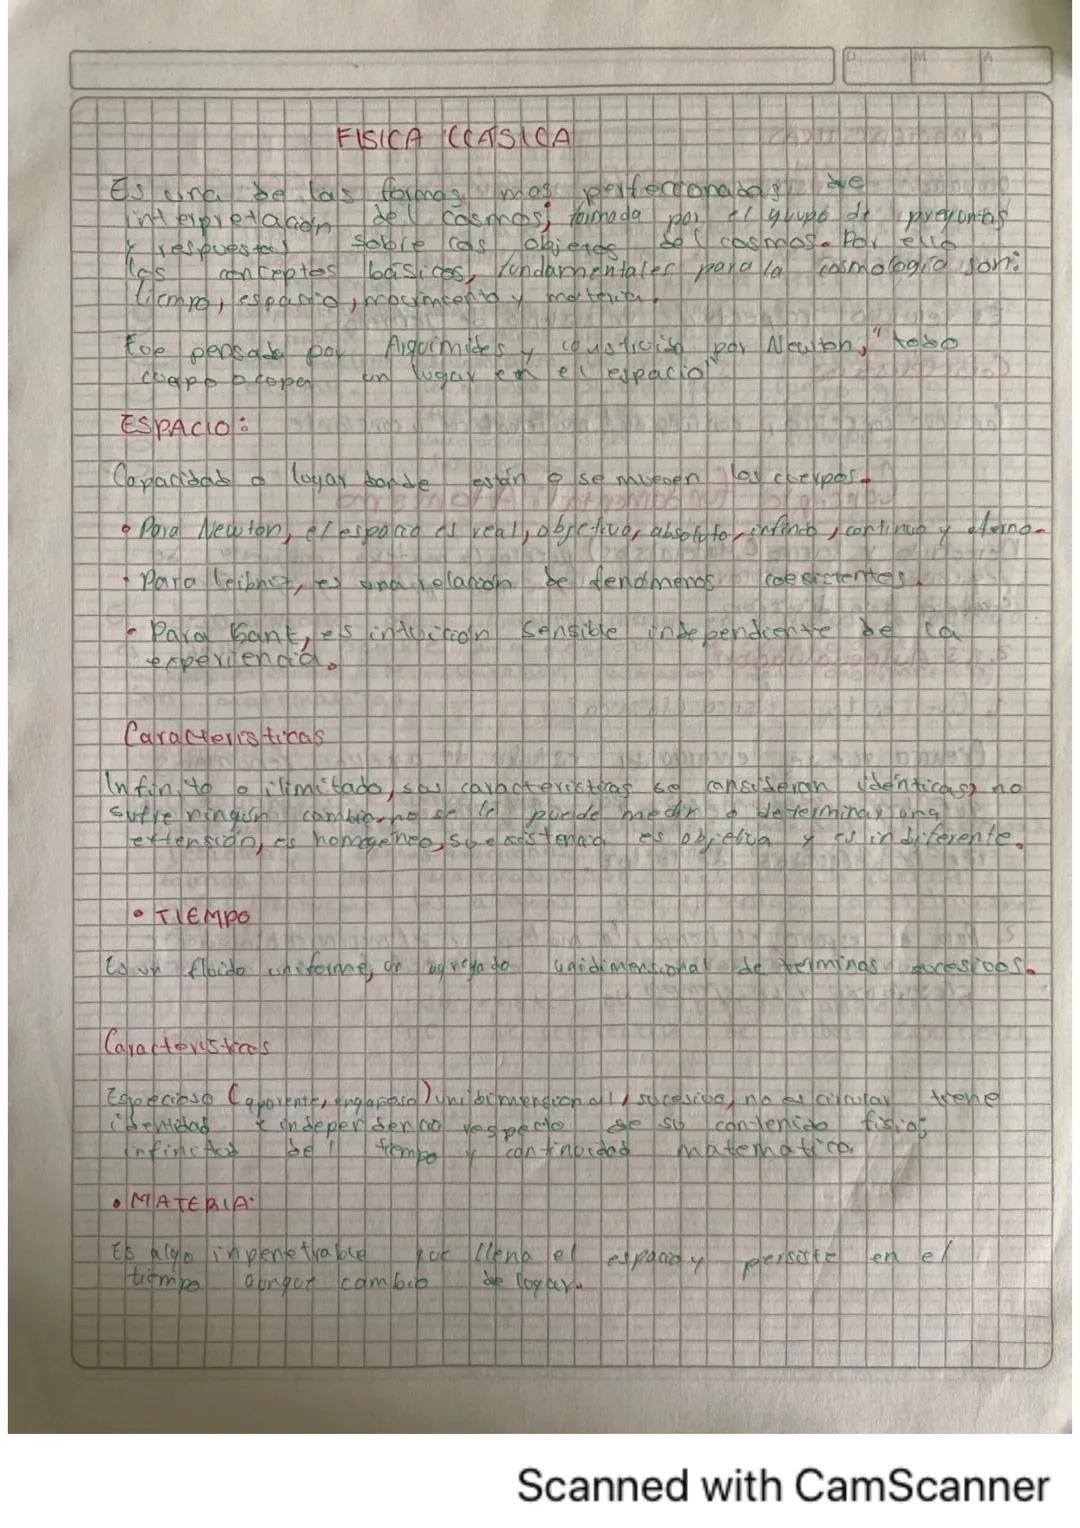 D M A
FISICA CLASICA
Es una de las formas mas perfeccionadas de
interpretación del cosmos, formada por el grupo de preguntas
y respuestas sobre los objetos del cosmos. Por ello
los conceptos básicos, fundamentales para la cosmología son:
tiempo, espacio, movimiento y materia.
Fue pensada por Arquimides y constitución por Newton, "todo
cuerpo ocupa un lugar en el espacio"
ESPACIO:
Capacidad o lugar donde están o se mueven los cuerpos.
• Para Newton, el espacio es real, objetivo, absoluto, infinito, continuo y eterno.
• Para Leibniz, es una relación de fenómenos coexistentes.
• Para Kant, es intuición sensible independiente de la
experiencia.
Características
Infinito o ilimitado, sus características se consideran idénticas, no
sufre ningún cambio, no se le puede medir o determinar una
extensión, es homogéneo, su existencia es objetiva y es indiferente.
• TIEMPO
Es un fluido uniforme, un agregado unidimensional de terminos sucesivos.
Características
Especioso (aparente, engañoso) unidimensional, sucesivo, no es circular tiene
identidad e independencia respecto de su contenido físico;
infinitud del tiempo y continuidad matematica
• MATERIA:
Es algo inpenetrable que llena el espacio y persiste en el
tiempo aunque cambie de lugar.
Scanned with CamScanner